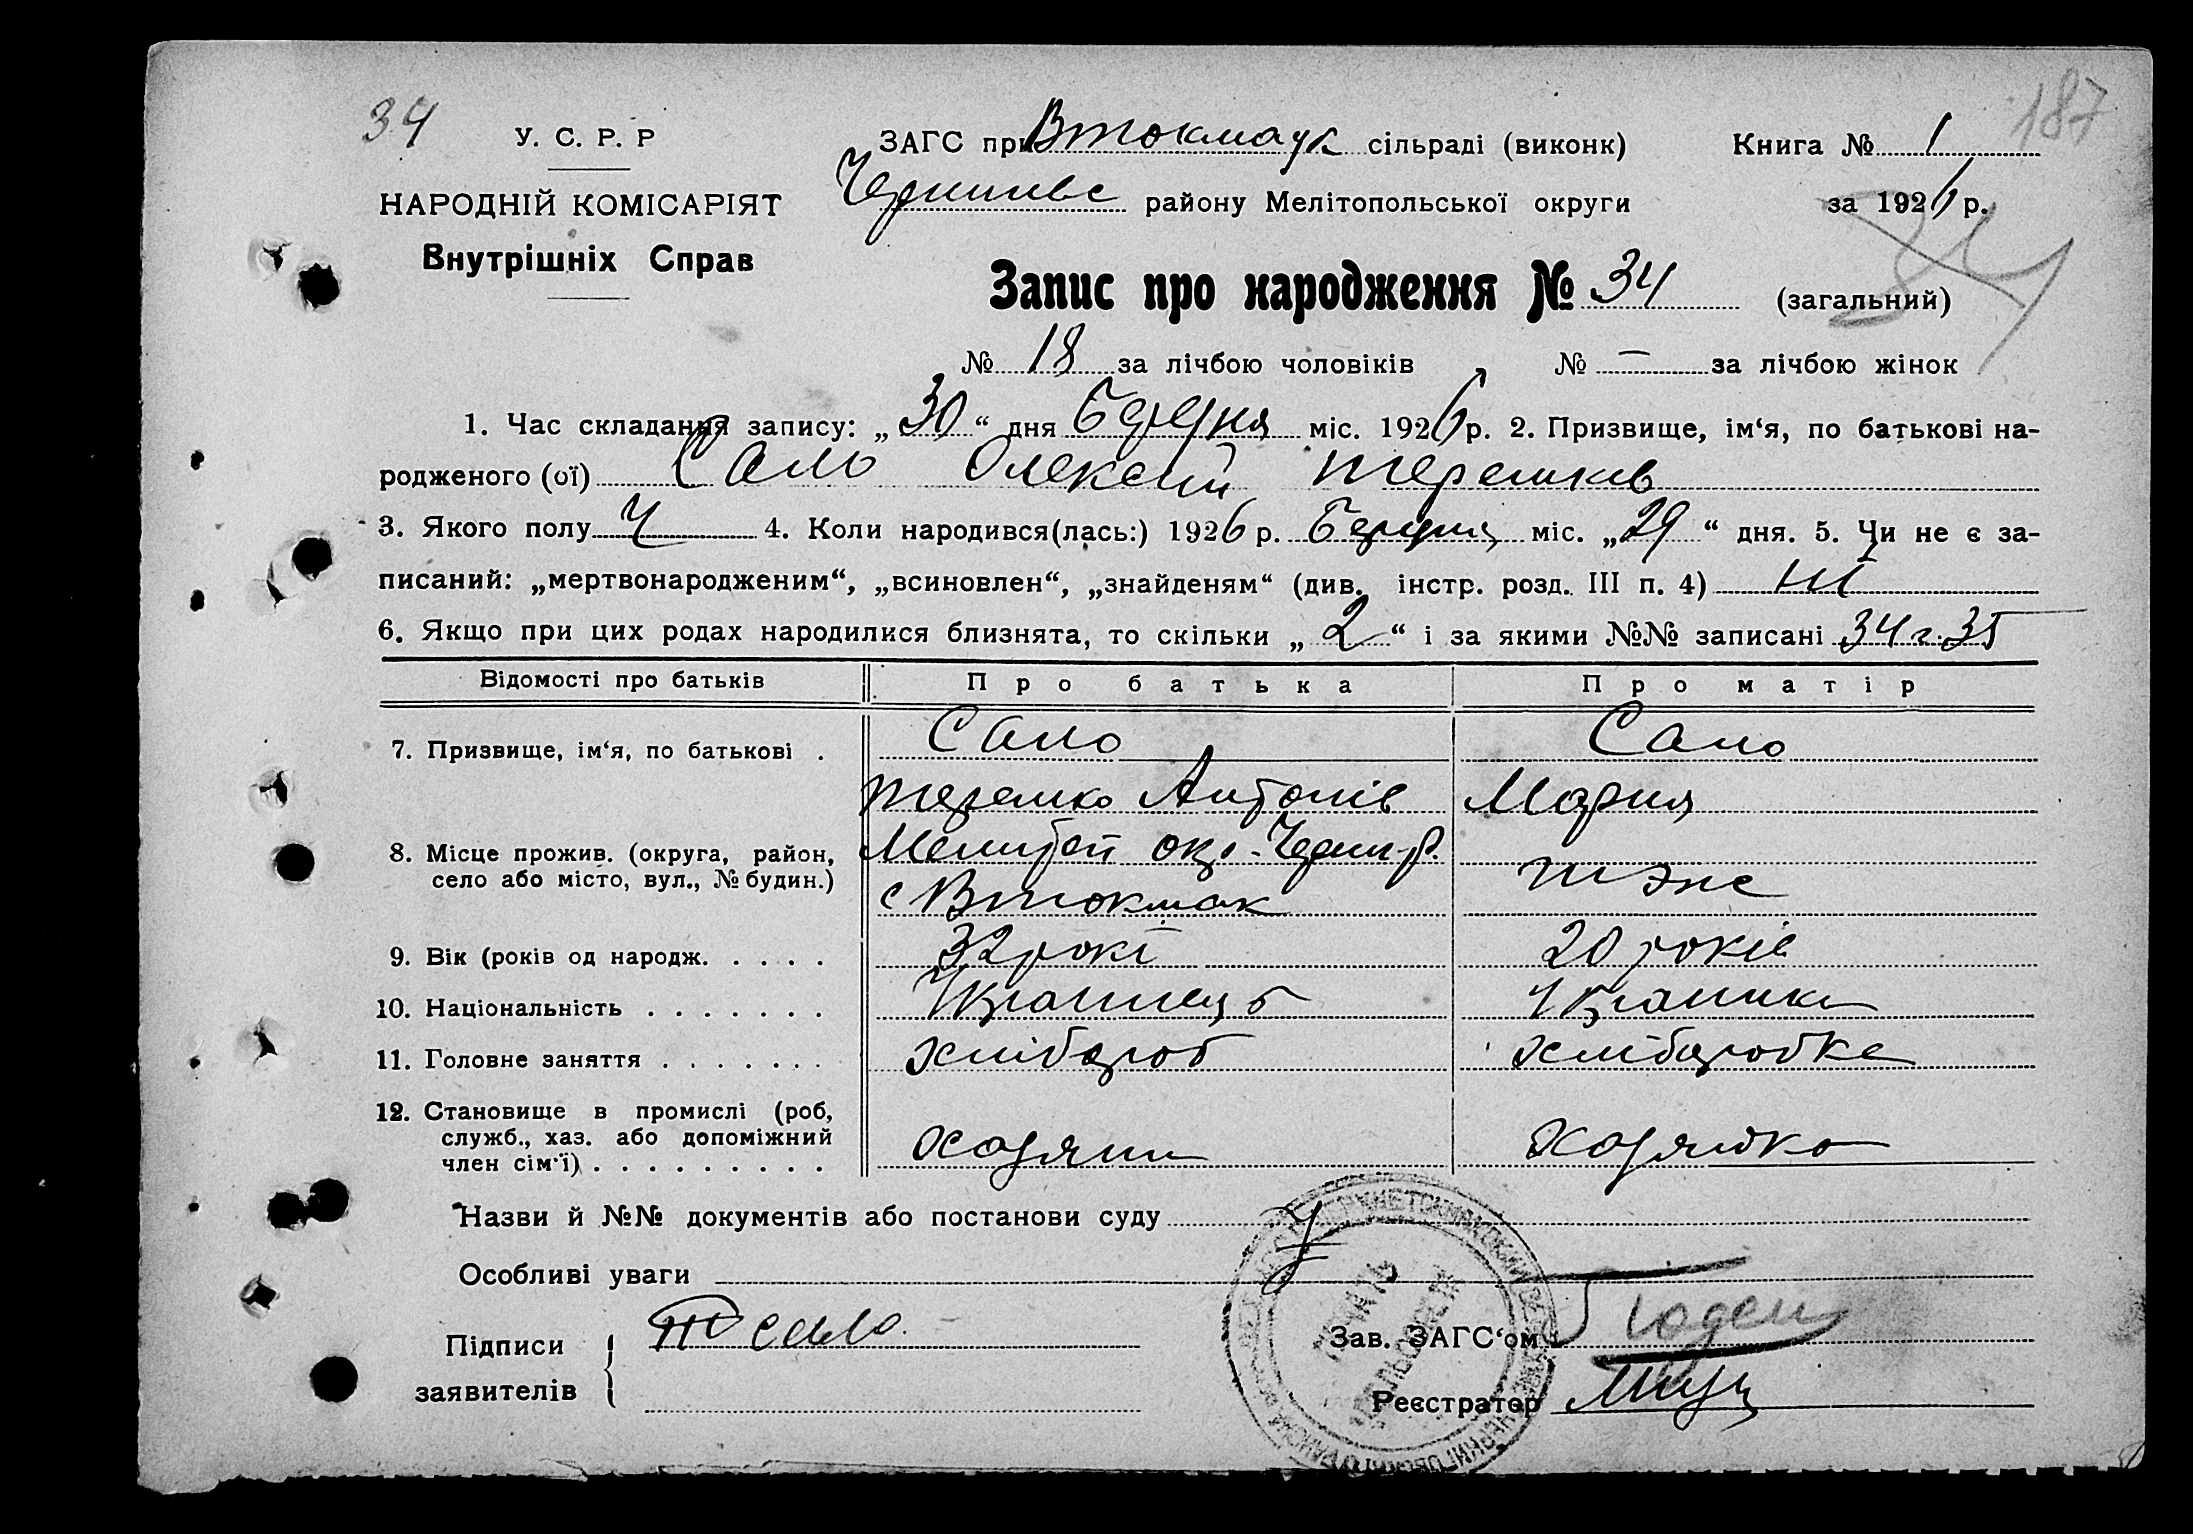 34 187
У. С. Р. Р ЗАГС при Втокмацк сільраді (виконк) Книга № 1
НАРОДНІЙ КОМІСАРІЯТ Чернигвс району Мелітопольської округи за 1926 р.
Внутрішніх Справ
34
Запис про народження № 34 (загальний)
№ 18 за лічбою чоловіків № — за лічбою жінок
1. Час складання запису: „30“ дня Березня міс. 1926 р. 2. Призвище, ім‘я, по батькові на-
родженого (ої) Сало Олексій Терешков
3. Якого полу Ч 4. Коли народився(лась:) 1926 р. Березня міс. „29“ дня. 5. Чи не є за-
писаний: „мертвонародженим“, „всиновлен“, „знайденям“ (див. інстр. розд. III п. 4) ні
6. Якщо при цих родах народилися близнята, то скільки „2“ і за якими №№ записані 34 г. 35
Відомості про батьків Про батька Про матір
7. Призвище, ім‘я, по батькові . Сало Сало
Терешко Антонів Мария
8. Місце прожив. (округа, район, село або місто, вул., № будин.) Мелитоп окр. Черниг р.
с Втокмак тэже
9. Вік (років од народж. . . . . 32 рокі 20 років
10. Національність . . . . . . . Українець Українка
11. Головне заняття . . . . . . . хлібороб хліборобка
12. Становище в промислі (роб,
служб., хаз. або допоміжний
член сім‘ї) . . . . . . . . . хозяин хозяйка
Назви й №№ документів або постанови суду
Особливі уваги
Підписи заявителів Т Сало
Зав. ЗАГС‘ом
Реєстратор